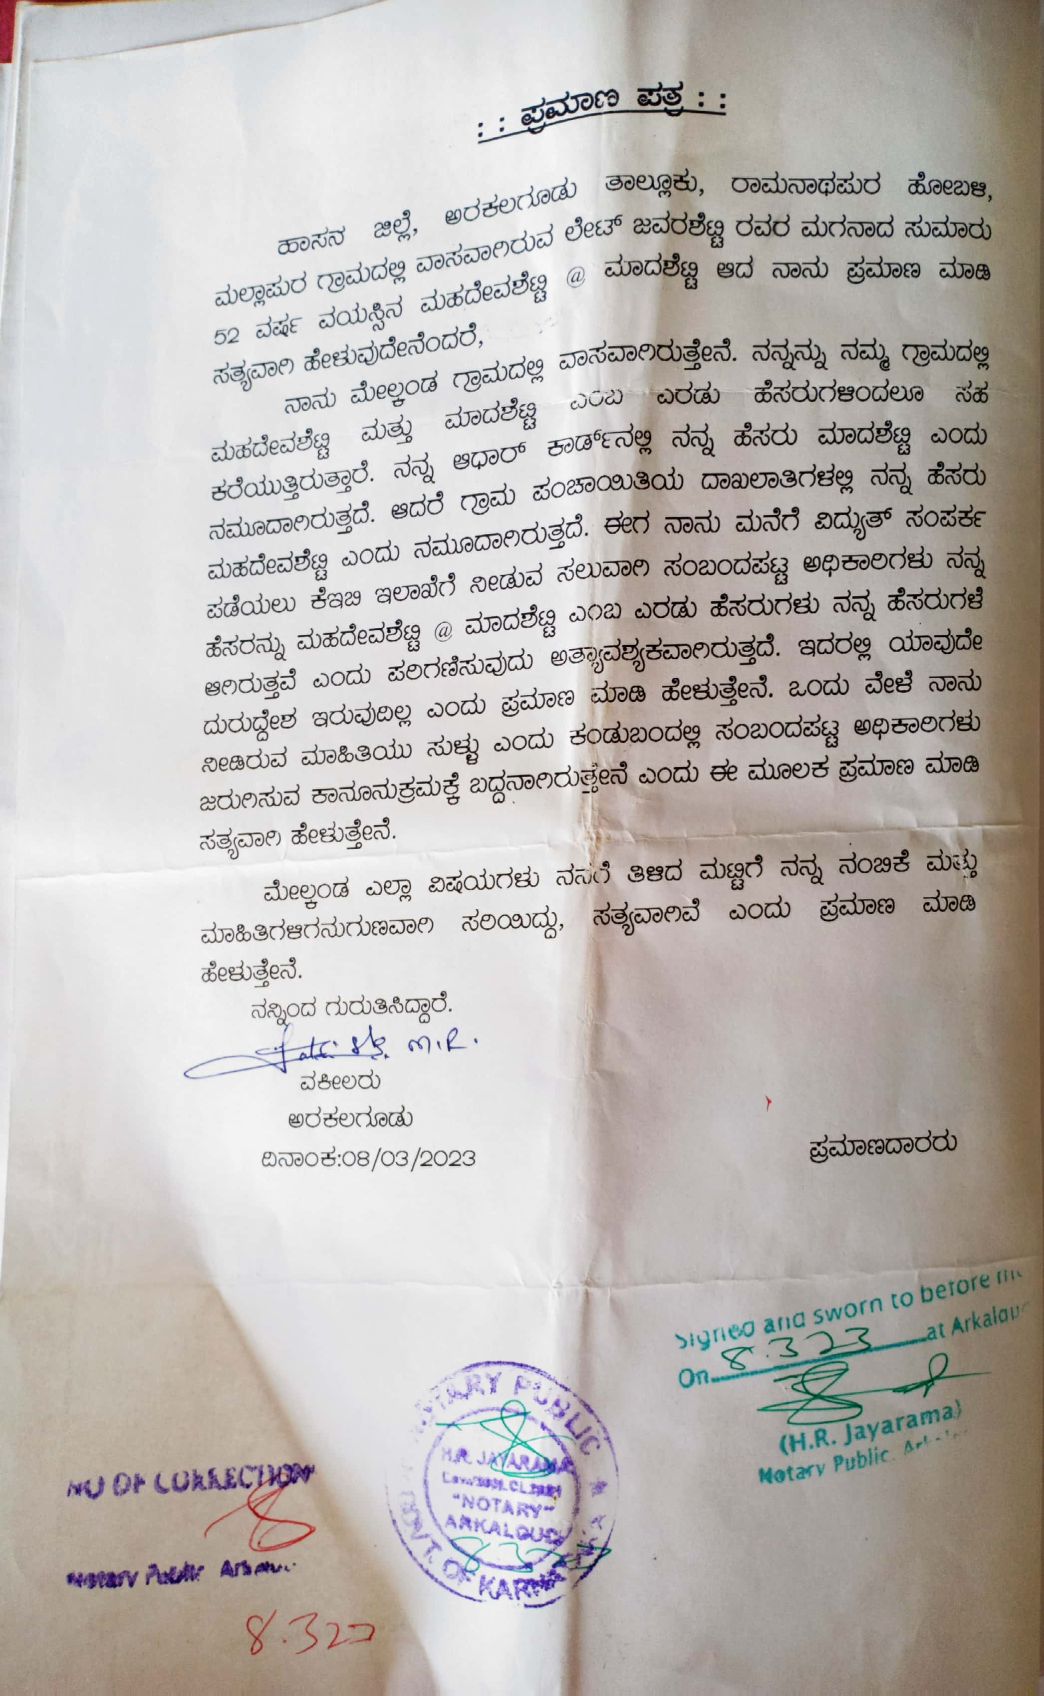 : : ಪ್ರಮಾಣ ಪತ್ರ : :
ಹಾಸನ ಜಿಲ್ಲೆ, ಅರಕಲಗೂಡು ತಾಲ್ಲೂಕು, ರಾಮನಾಥಪುರ ಹೋಬಳಿ,
ಮಲ್ಲಾಪುರ ಗ್ರಾಮದಲ್ಲಿ ವಾಸವಾಗಿರುವ ಲೇಟ್ ಜವರಶೆಟ್ಟಿ ರವರ ಮಗನಾದ ಸುಮಾರು
52 ವರ್ಷ ವಯಸ್ಸಿನ ಮಹದೇವಶೆಟ್ಟಿ @ ಮಾದಶೆಟ್ಟಿ ಆದ ನಾನು ಪ್ರಮಾಣ ಮಾಡಿ
ಸತ್ಯವಾಗಿ ಹೇಳುವುದೇನೆಂದರೆ,
ನಾನು ಮೇಲ್ಕಂಡ ಗ್ರಾಮದಲ್ಲಿ ವಾಸವಾಗಿರುತ್ತೇನೆ. ನನ್ನನ್ನು ನಮ್ಮ ಗ್ರಾಮದಲ್ಲಿ
ಮಹದೇವಶೆಟ್ಟಿ ಮತ್ತು ಮಾದಶೆಟ್ಟಿ ಎಂಬ ಎರಡು ಹೆಸರುಗಳಿಂದಲೂ ಸಹ
ಕರೆಯುತ್ತಿರುತ್ತಾರೆ. ನನ್ನ ಆಧಾರ್ ಕಾರ್ಡ್‌ನಲ್ಲಿ ನನ್ನ ಹೆಸರು ಮಾದಶೆಟ್ಟಿ ಎಂದು
ನಮೂದಾಗಿರುತ್ತದೆ. ಆದರೆ ಗ್ರಾಮ ಪಂಚಾಯಿತಿಯ ದಾಖಲಾತಿಗಳಲ್ಲಿ ನನ್ನ ಹೆಸರು
ಮಹದೇವಶೆಟ್ಟಿ ಎಂದು ನಮೂದಾಗಿರುತ್ತದೆ. ಈಗ ನಾನು ಮನೆಗೆ ವಿದ್ಯುತ್ ಸಂಪರ್ಕ
ಪಡೆಯಲು ಕೆಇಬಿ ಇಲಾಖೆಗೆ ನೀಡುವ ಸಲುವಾಗಿ ಸಂಬಂದಪಟ್ಟ ಅಧಿಕಾರಿಗಳು ನನ್ನ
ಹೆಸರನ್ನು ಮಹದೇವಶೆಟ್ಟಿ @ ಮಾದಶೆಟ್ಟಿ ಎಂಬ ಎರಡು ಹೆಸರುಗಳು ನನ್ನ ಹೆಸರುಗಳೆ
ಆಗಿರುತ್ತವೆ ಎಂದು ಪರಿಗಣಿಸುವುದು ಅತ್ಯಾವಶ್ಯಕವಾಗಿರುತ್ತದೆ. ಇದರಲ್ಲಿ ಯಾವುದೇ
ದುರುದ್ದೇಶ ಇರುವುದಿಲ್ಲ ಎಂದು ಪ್ರಮಾಣ ಮಾಡಿ ಹೇಳುತ್ತೇನೆ. ಒಂದು ವೇಳೆ ನಾನು
ನೀಡಿರುವ ಮಾಹಿತಿಯು ಸುಳ್ಳು ಎಂದು ಕಂಡುಬಂದಲ್ಲಿ ಸಂಬಂದಪಟ್ಟ ಅಧಿಕಾರಿಗಳು
ಜರುಗಿಸುವ ಕಾನೂನುಕ್ರಮಕ್ಕೆ ಬದ್ದನಾಗಿರುತ್ತೇನೆ ಎಂದು ಈ ಮೂಲಕ ಪ್ರಮಾಣ ಮಾಡಿ
ಸತ್ಯವಾಗಿ ಹೇಳುತ್ತೇನೆ.
ಮೇಲ್ಕಂಡ ಎಲ್ಲಾ ವಿಷಯಗಳು ನನಗೆ ತಿಳಿದ ಮಟ್ಟಿಗೆ ನನ್ನ ನಂಬಿಕೆ ಮತ್ತು
ಮಾಹಿತಿಗಳಿಗನುಗುಣವಾಗಿ ಸರಿಯಿದ್ದು, ಸತ್ಯವಾಗಿವೆ ಎಂದು ಪ್ರಮಾಣ ಮಾಡಿ
ಹೇಳುತ್ತೇನೆ.
ನನ್ನಿಂದ ಗುರುತಿಸಿದ್ದಾರೆ.
M.R.
ವಕೀಲರು
ಅರಕಲಗೂಡು
ದಿನಾಂಕ:08/03/2023
ಪ್ರಮಾಣದಾರರು
Signed and sworn to before
On 8.3.23 at
(H.R. Jayarama)
Notary Public
NOTARY PUBLIC
H.R. JAYARAMA
"NOTARY"
ARKALGUD
GOVT. OF
NO OF CORRECTION
Notary Public
8.323